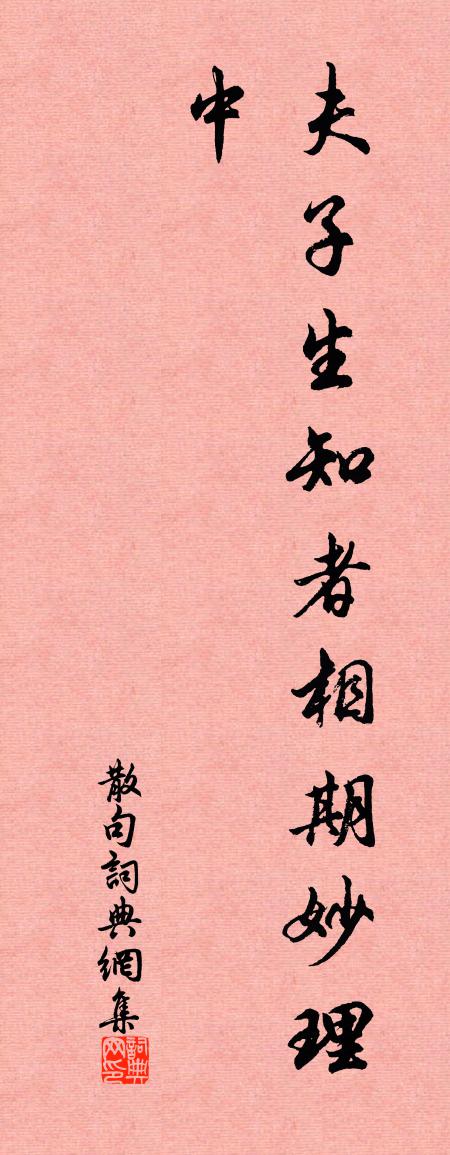 夫子生知者相期妙理
中
散句詞典網集
詞典
网印